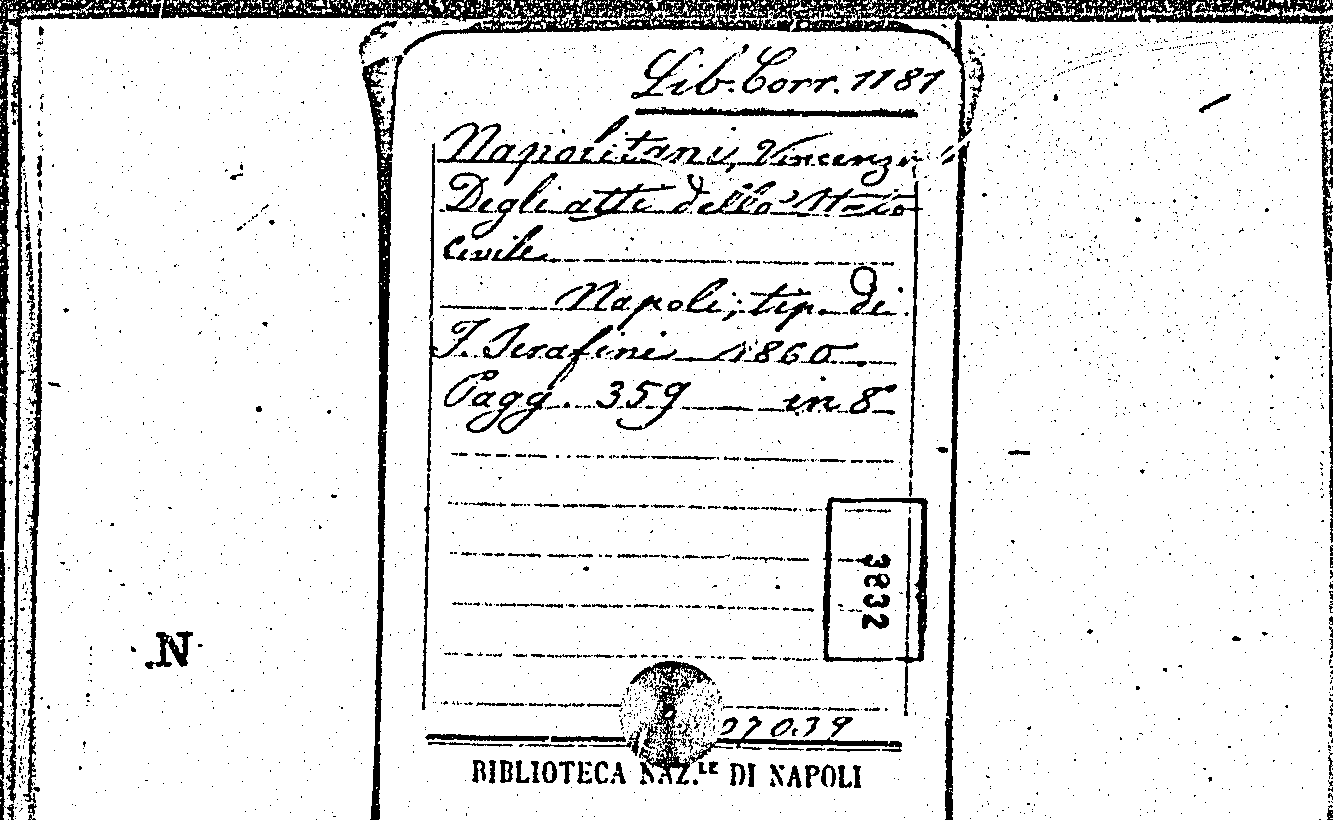 Lib. Corr. 1181
Napolitani, Vincenzo
Degli atti dello Stato
civile
Napoli, tip. di
F. Serafini 1860
Pagg. 359 in 8°
3832
27039
N.
BIBLIOTECA NAZ.LE DI NAPOLI